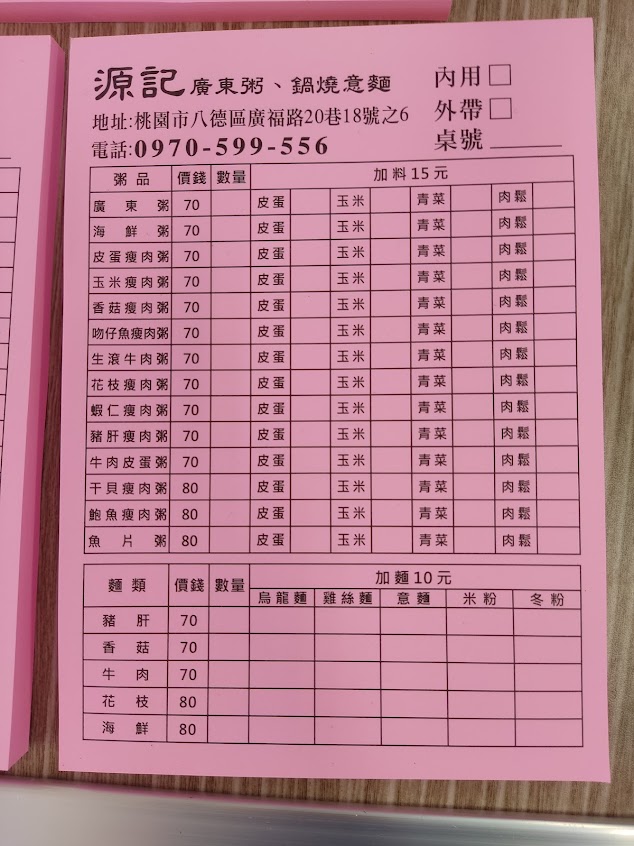 源記 廣東粥、鍋燒意麵 內用□
地址:桃園市八德區廣福路20巷18號之6 外帶□
電話:0970-599-556 桌號
粥品 價錢 數量 加料15元
廣東粥 70 皮蛋 玉米 青菜 肉鬆
海鮮粥 70 皮蛋 玉米 青菜 肉鬆
皮蛋瘦肉粥 70 皮蛋 玉米 青菜 肉鬆
玉米瘦肉粥 70 皮蛋 玉米 青菜 肉鬆
香菇瘦肉粥 70 皮蛋 玉米 青菜 肉鬆
吻仔魚瘦肉粥 70 皮蛋 玉米 青菜 肉鬆
生滾牛肉粥 70 皮蛋 玉米 青菜 肉鬆
花枝瘦肉粥 70 皮蛋 玉米 青菜 肉鬆
蝦仁瘦肉粥 70 皮蛋 玉米 青菜 肉鬆
豬肝瘦肉粥 70 皮蛋 玉米 青菜 肉鬆
牛肉皮蛋粥 70 皮蛋 玉米 青菜 肉鬆
干貝瘦肉粥 80 皮蛋 玉米 青菜 肉鬆
鮑魚瘦肉粥 80 皮蛋 玉米 青菜 肉鬆
魚片粥 80 皮蛋 玉米 青菜 肉鬆
麵類 價錢 數量 加麵10元
烏龍麵 雞絲麵 意麵 米粉 冬粉
豬肝 70
香菇 70
牛肉 70
花枝 80
海鮮 80